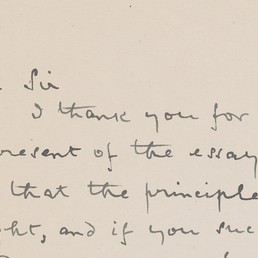 Sir
I thank you for
present of the essay
that the principle
ght, and if you suc